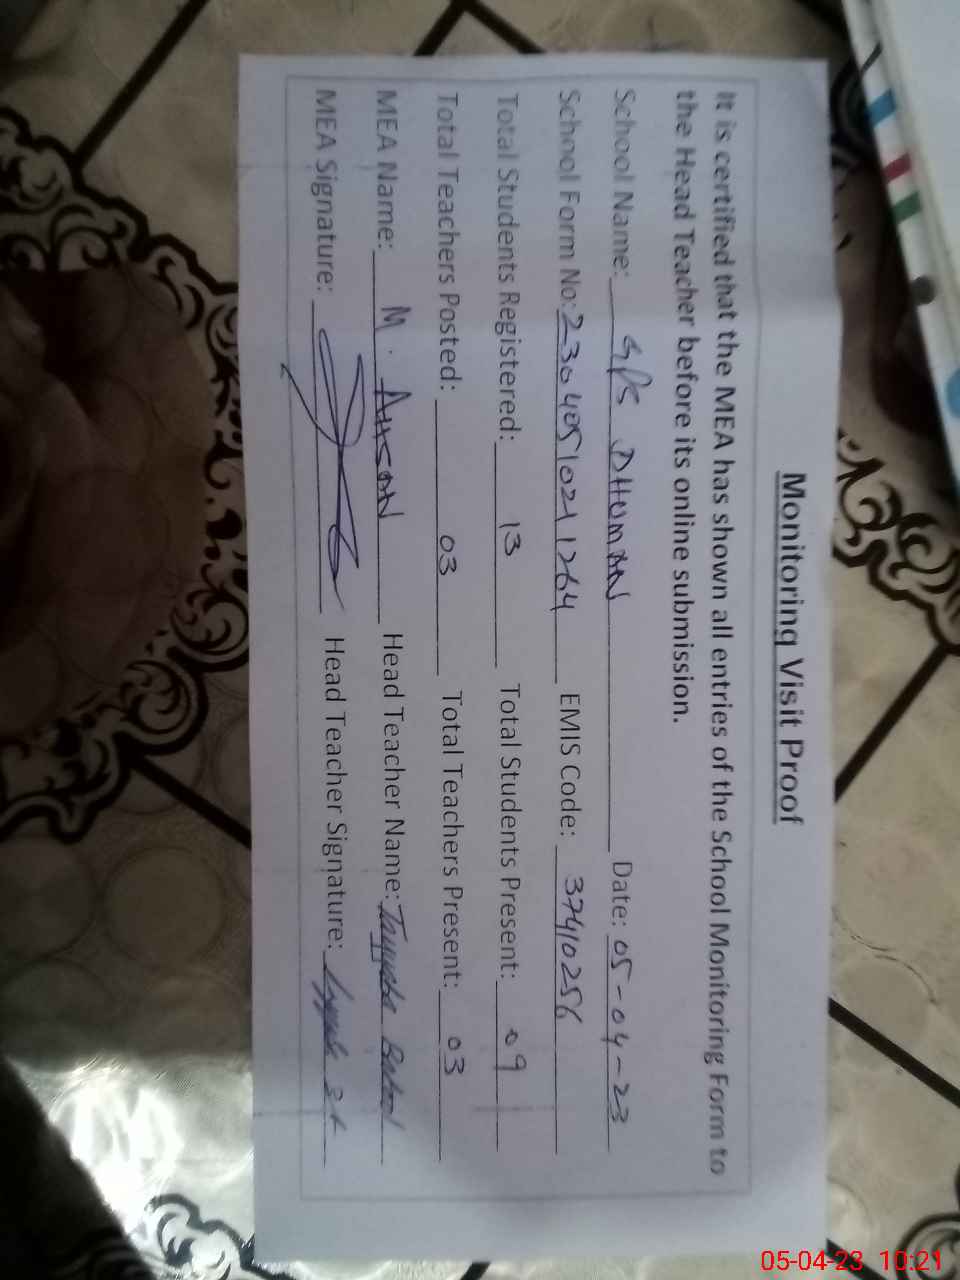 Monitoring Visit Proof
It is certified that the MEA has shown all entries of the School Monitoring Form to
the Head Teacher before its online submission.
School Name: G/PS DHUMAN Date: 05-04-23
School Form No: 23040510211264 EMIS Code: 37410256
Total Students Registered: 13 Total Students Present: 09
Total Teachers Posted: 03 Total Teachers Present: 03
MEA Name: M. AHSAN Head Teacher Name: Batool
MEA Signature: Head Teacher Signature:
05-04-23 10:21